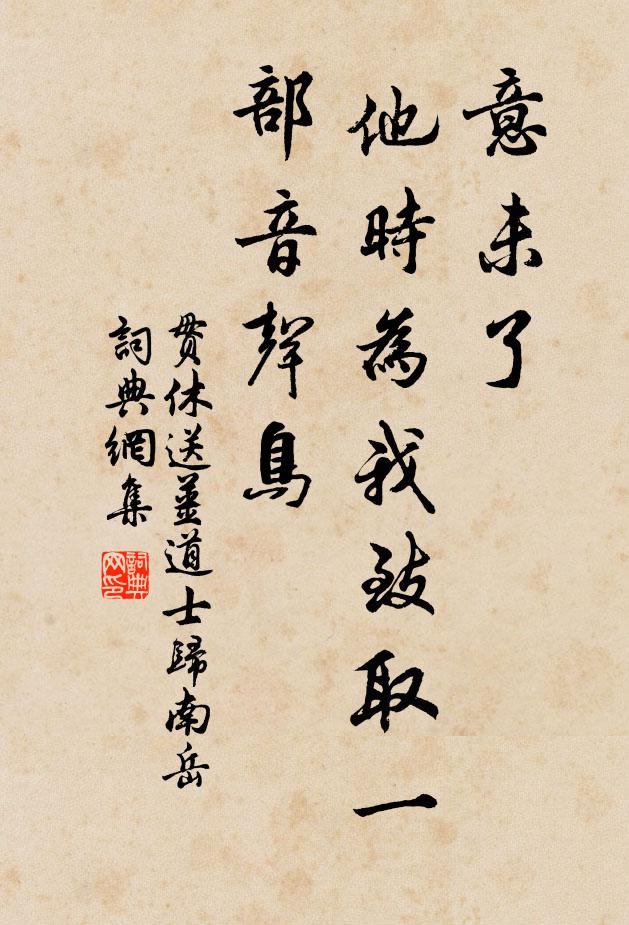 意未了
他時為我致取一
部音聲鳥
貫休送薑道士歸南岳
詞典網集
詞典
网印